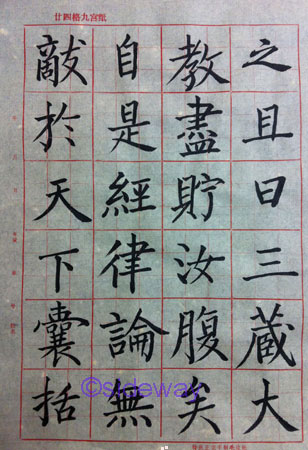 廿四格九宮紙
之且曰三藏大
教盡貯汝腹矣
自是經律論無
敵於天下囊括
©sideway